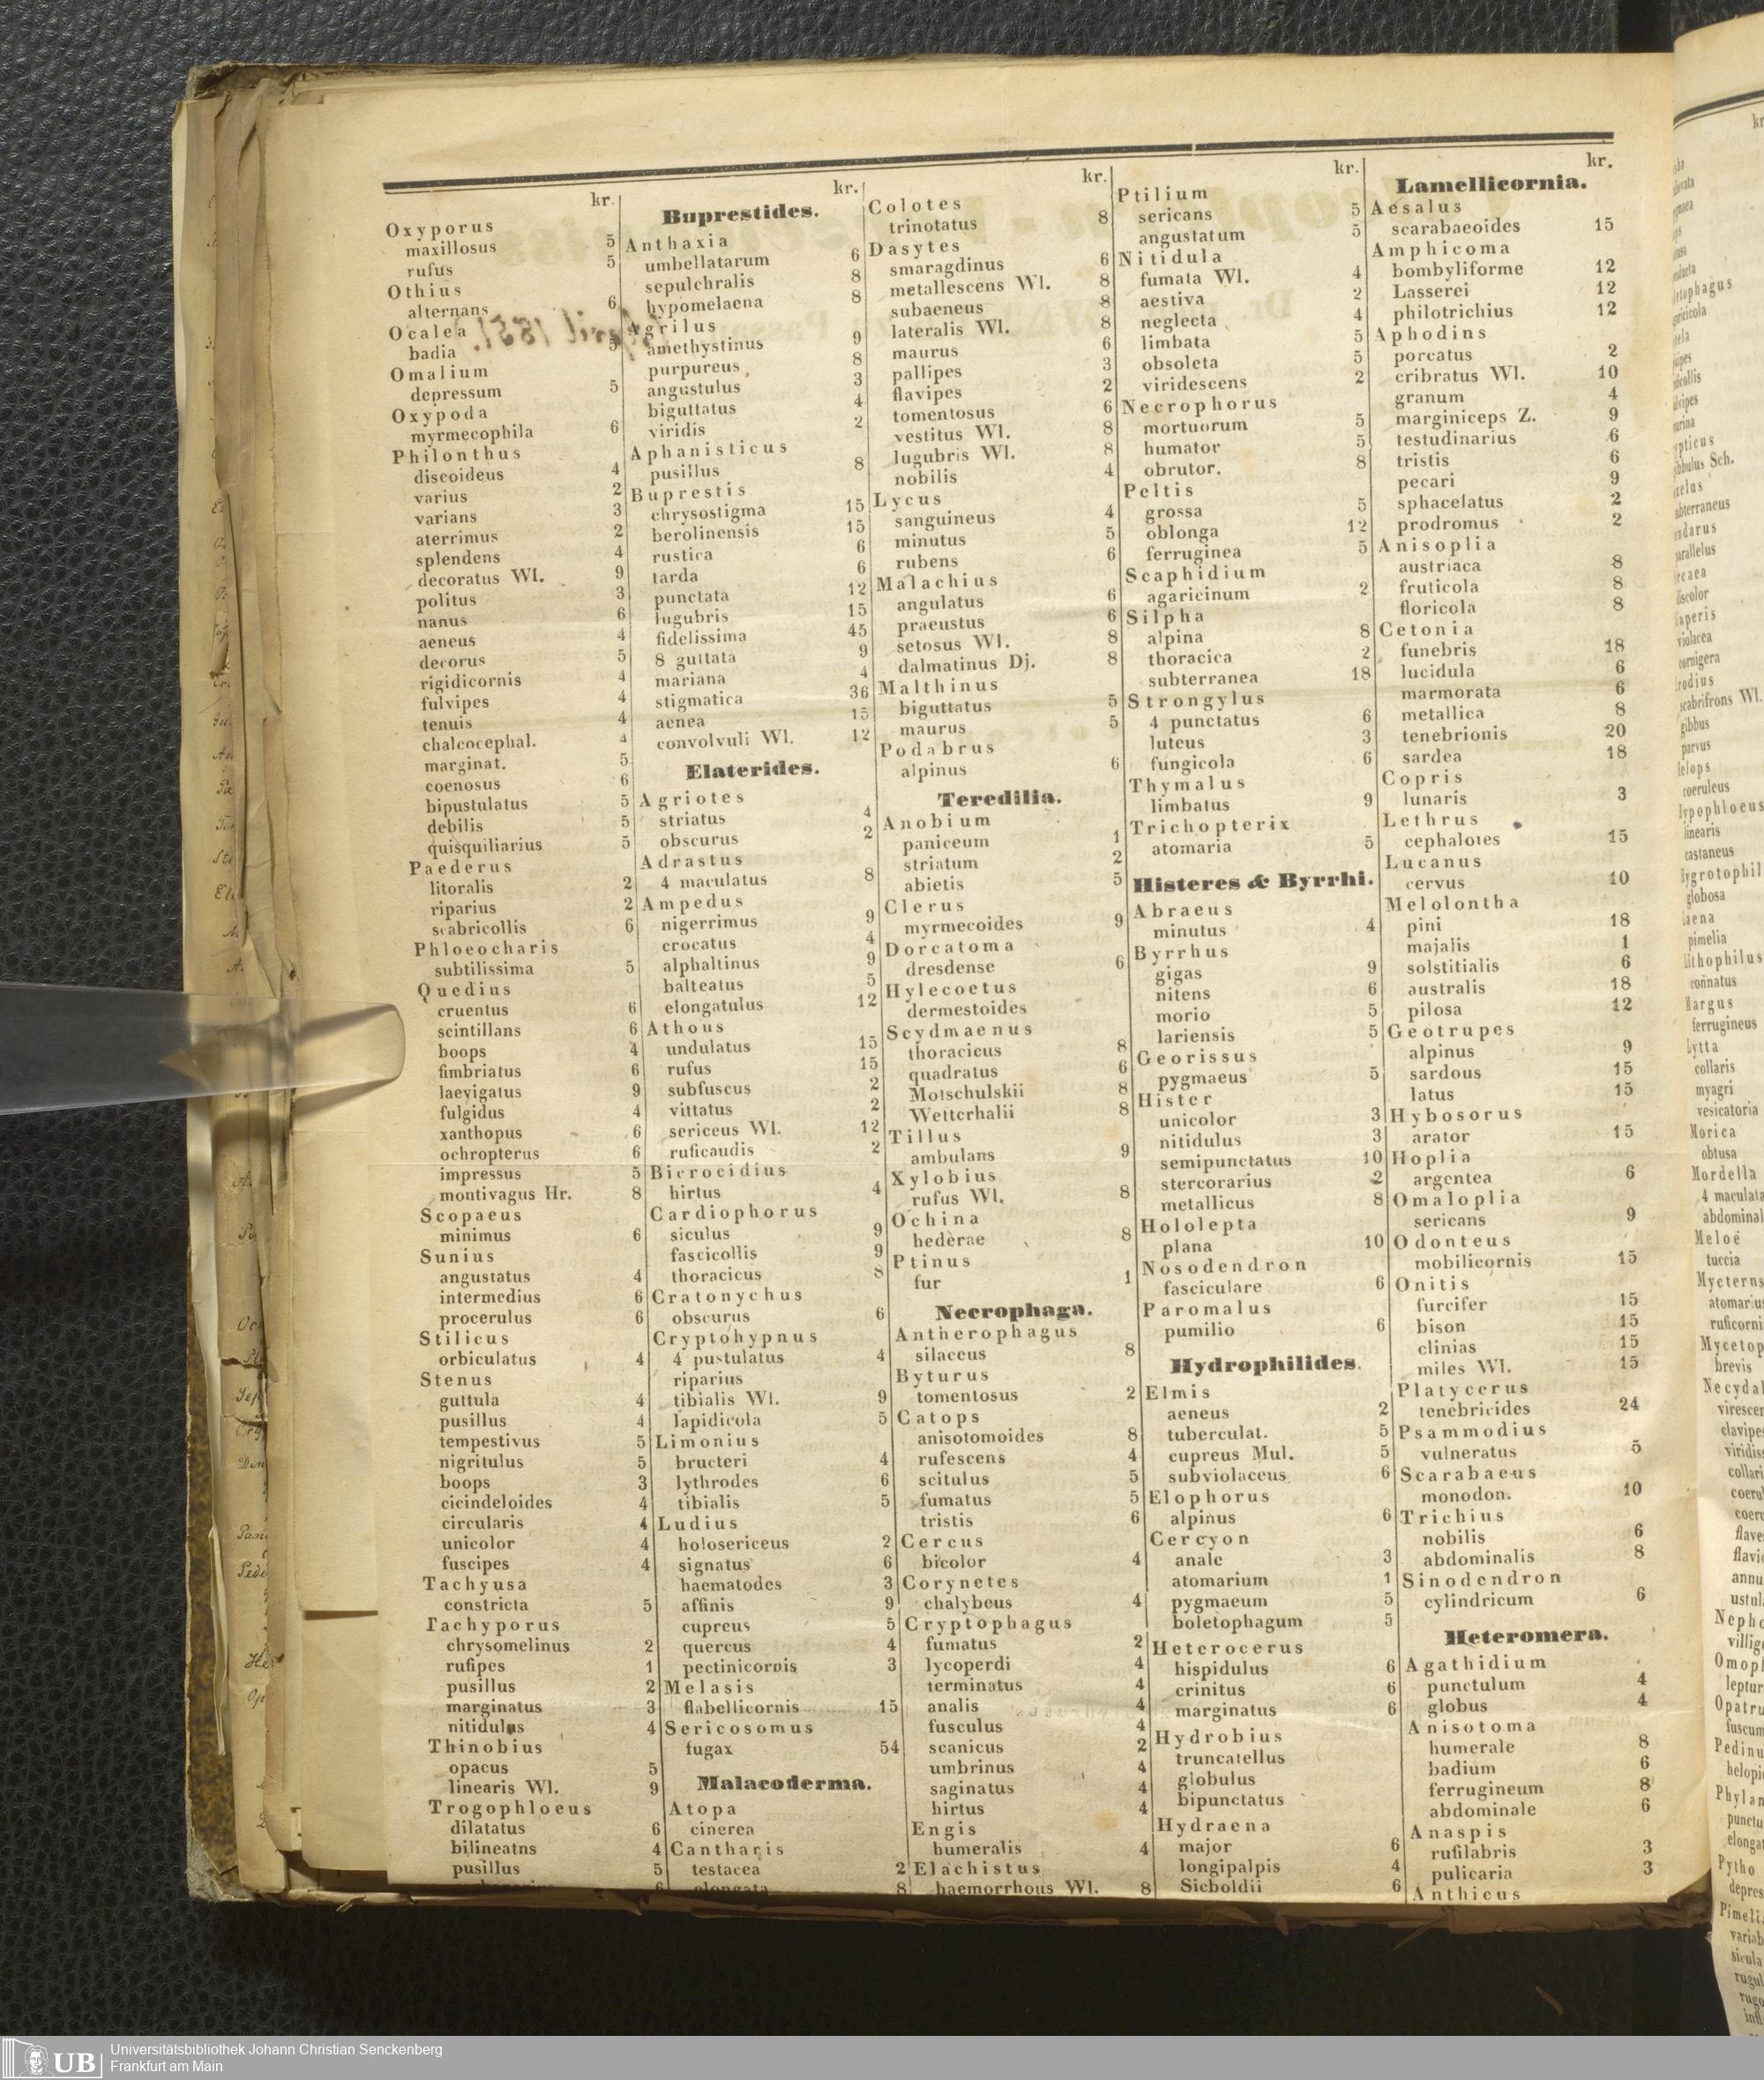 kr.
Oxyporus
maxillosus 5
rufus 5
Othius
alternans 6
Ocalea
badia 5
Omalium
depressum 5
Oxypoda
myrmecophila 6
Philonthus
discoideus 4
varius 2
varians 3
aterrimus 2
splendens 4
decoratus Wl. 9
politus 3
nanus 6
aeneus 4
decorus 5
rigidicornis 4
fulvipes 4
tenuis 4
chalcocephal. 4
marginat. 5
coenosus 6
bipustulatus 5
debilis 5
quisquiliarius 5
Paederus
litoralis 2
riparius 2
scabricollis 6
Phloeocharis
subtilissima 5
Quedius
cruentus 6
scintillans 6
boops 4
fimbriatus 6
laevigatus 9
fulgidus 4
xanthopus 6
ochropterus 6
impressus 5
montivagus Hr. 8
Scopaeus
minimus 6
Sunius
angustatus 4
intermedius 6
procerulus 6
Stilicus
orbiculatus 4
Stenus
guttula 4
pusillus 4
tempestivus 5
nigritulus 5
boops 3
cicindeloides 4
circularis 4
unicolor 4
fuscipes 4
Tachyusa
constricta 5
Tachyporus
chrysomelinus 2
rufipes 1
pusillus 2
marginatus 3
nitidulus 4
Thinobius
opacus 5
linearis Wl. 9
Trogophloeus
dilatatus 6
bilineatns 4
pusillus 5
6
kr.
Buprestides.
Anthaxia
umbellatarum 6
sepulchralis 8
hypomelaena 8
Agrilus
amethystinus 9
purpureus 8
angustulus 3
biguttatus 4
viridis 2
Aphanisticus
pusillus 8
Buprestis
chrysostigma 15
berolinensis 15
rustica 6
tarda 6
punctata 12
lugubris 15
fidelissima 45
8 guttata 9
mariana 4
stigmatica 36
aenea 15
convolvuli Wl. 12
Elaterides.
Agriotes
striatus 4
obscurus 2
Adrastus
4 maculatus 8
Ampedus
nigerrimus 9
crocatus 4
alphaltinus 9
balteatus 5
elongatulus 12
Athous
undulatus 15
rufus 15
subfuscus 2
vittatus 2
sericeus Wl. 12
ruficaudis 2
Bicrocidius
hirtus 4
Cardiophorus
siculus 9
fascicollis 9
thoracicus 8
Cratonychus
obscurus 6
Cryptohypnus
4 pustulatus 4
riparius
tibialis Wl. 9
lapidicola 5
Limonius
bructeri 4
lythrodes 6
tibialis 5
Ludius
holosericeus 2
signatus 6
haematodes 3
affinis 9
cupreus 5
quercus 4
pectinicornis 3
Melasis
flabellicornis 15
Sericosomus
fugax 54
Malacoderma.
Atopa
cinerea
Cantharis
testacea 2
elongata 8
kr.
Colotes
trinotatus 8
Dasytes
smaragdinus 6
metallescens Wl. 8
subaeneus 8
lateralis Wl. 8
maurus 6
pallipes 3
flavipes 2
tomentosus 6
vestitus Wl. 8
lugubris Wl. 8
nobilis 4
Lycus
sanguineus 4
minutus 5
rubens 6
Malachius
angulatus 6
praeustus 6
setosus Wl. 8
dalmatinus Dj. 8
Malthinus
biguttatus 5
maurus 5
Podabrus
alpinus 6
Teredilia.
Anobium
paniceum 1
striatum 2
abietis 5
Clerus
myrmecoides 9
Dorcatoma
dresdense 6
Hylecoetus
dermestoides
Scydmaenus
thoracicus 8
quadratus 6
Motschulskii 8
Wetterhalii 8
Tillus
ambulans 9
Xylobius
rufus Wl. 8
Ochina
hederae 8
Ptinus
fur 1
Necrophaga.
Antherophagus
silaceus 8
Byturus
tomentosus 2
Catops
anisotomoides 8
rufescens 4
scitulus 5
fumatus 5
tristis 6
Cercus
bicolor 4
Corynetes
chalybeus 4
Cryptophagus
fumatus 2
lycoperdi 4
terminatus 4
analis 4
fusculus 4
scanicus 2
umbrinus 4
saginatus 4
hirtus 4
Engis
humeralis 4
Elachistus
haemorrhous Wl. 8
kr.
Ptilium
sericans 5
angustatum 5
Nitidula
fumata Wl. 4
aestiva 2
neglecta 4
limbata 5
obsoleta 5
viridescens 2
Necrophorus
mortuorum 5
humator 5
obrutor. 8
Peltis
grossa 5
oblonga 12
ferruginea 5
Scaphidium
agaricinum 2
Silpha
alpina 8
thoracica 2
subterranea 18
Strongylus
4 punctatus 6
luteus 3
fungicola 6
Thymalus
limbatus 9
Trichopterix
atomaria 5
Histeres & Byrrhi.
Abraeus
minutus 4
Byrrhus
gigas 9
nitens 6
morio 5
lariensis 5
Georissus
pygmaeus 5
Hister
unicolor 3
nitidulus 3
semipunctatus 10
stercorarius 2
metallicus 8
Hololepta
plana 10
Nosodendron
fasciculare 6
Paromalus
pumilio 6
Hydrophilides.
Elmis
aeneus 2
tuberculat. 5
cupreus Mul. 5
subviolaceus 6
Elophorus
alpinus 6
Cercyon
anale 3
atomarium 1
pygmaeum 5
boletophagum 5
Heterocerus
hispidulus 6
crinitus 6
marginatus 6
Hydrobius
truncatellus
globulus
bipunctatus
Hydraena
major 6
longipalpis 4
Sieboldii 6
kr.
Lamellicornia.
Aesalus
scarabaeoides 15
Amphicoma
bombyliforme 12
Lasserei 12
philotrichius 12
Aphodins
porcatus 2
cribratus Wl. 10
granum 4
marginiceps Z. 9
testudinarius 6
tristis 6
pecari 9
sphacelatus 2
prodromus 2
Anisoplia
austriaca 8
fruticola 8
floricola 8
Cetonia
funebris 18
lucidula 6
marmorata 6
metallica 8
tenebrionis 20
sardea 18
Copris
lunaris 3
Lethrus
cephalotes 15
Lucanus
cervus 10
Melolontha
pini 18
majalis 1
solstitialis 6
australis 18
pilosa 12
Geotrupes
alpinus 9
sardous 15
latus 15
Hybosorus
arator 15
Hoplia
argentea 6
Omaloplia
sericans 9
Odonteus
mobilicornis 15
Onitis
furcifer 15
bison 15
clinias 15
miles Wl. 15
Platycerus
tenebricides 24
Psammodius
vulneratus 5
Scarabaeus
monodon. 10
Trichius
nobilis 6
abdominalis 8
Sinodendron
cylindricum 6
Heteromera.
Agathidium
punctulum 4
globus 4
Anisotoma
humerale 8
badium 6
ferrugineum 8
abdominale 6
Anaspis
rufilabris 3
pulicaria 3
Anthicus
UB
Universitätsbibliothek Johann Christian Senckenberg
Frankfurt am Main